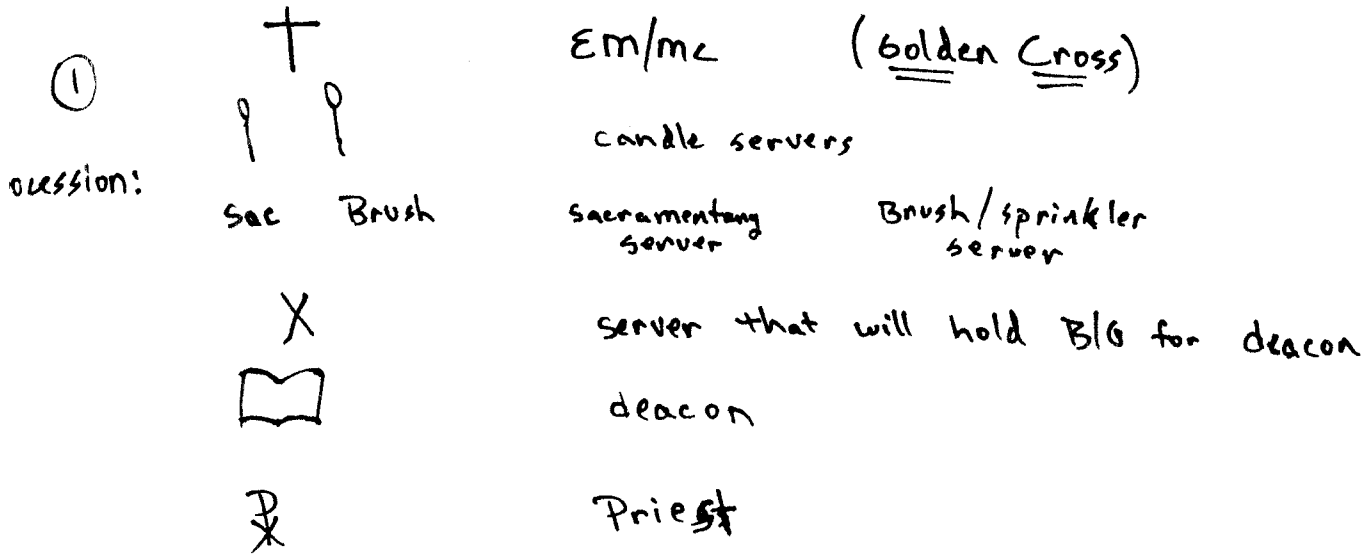 Em/mc (Golden Cross)
1
candle servers
ocession:
Sac Brush sacramentary server Brush/sprinkler server
X server that will hold B/G for deacon
deacon
Priest